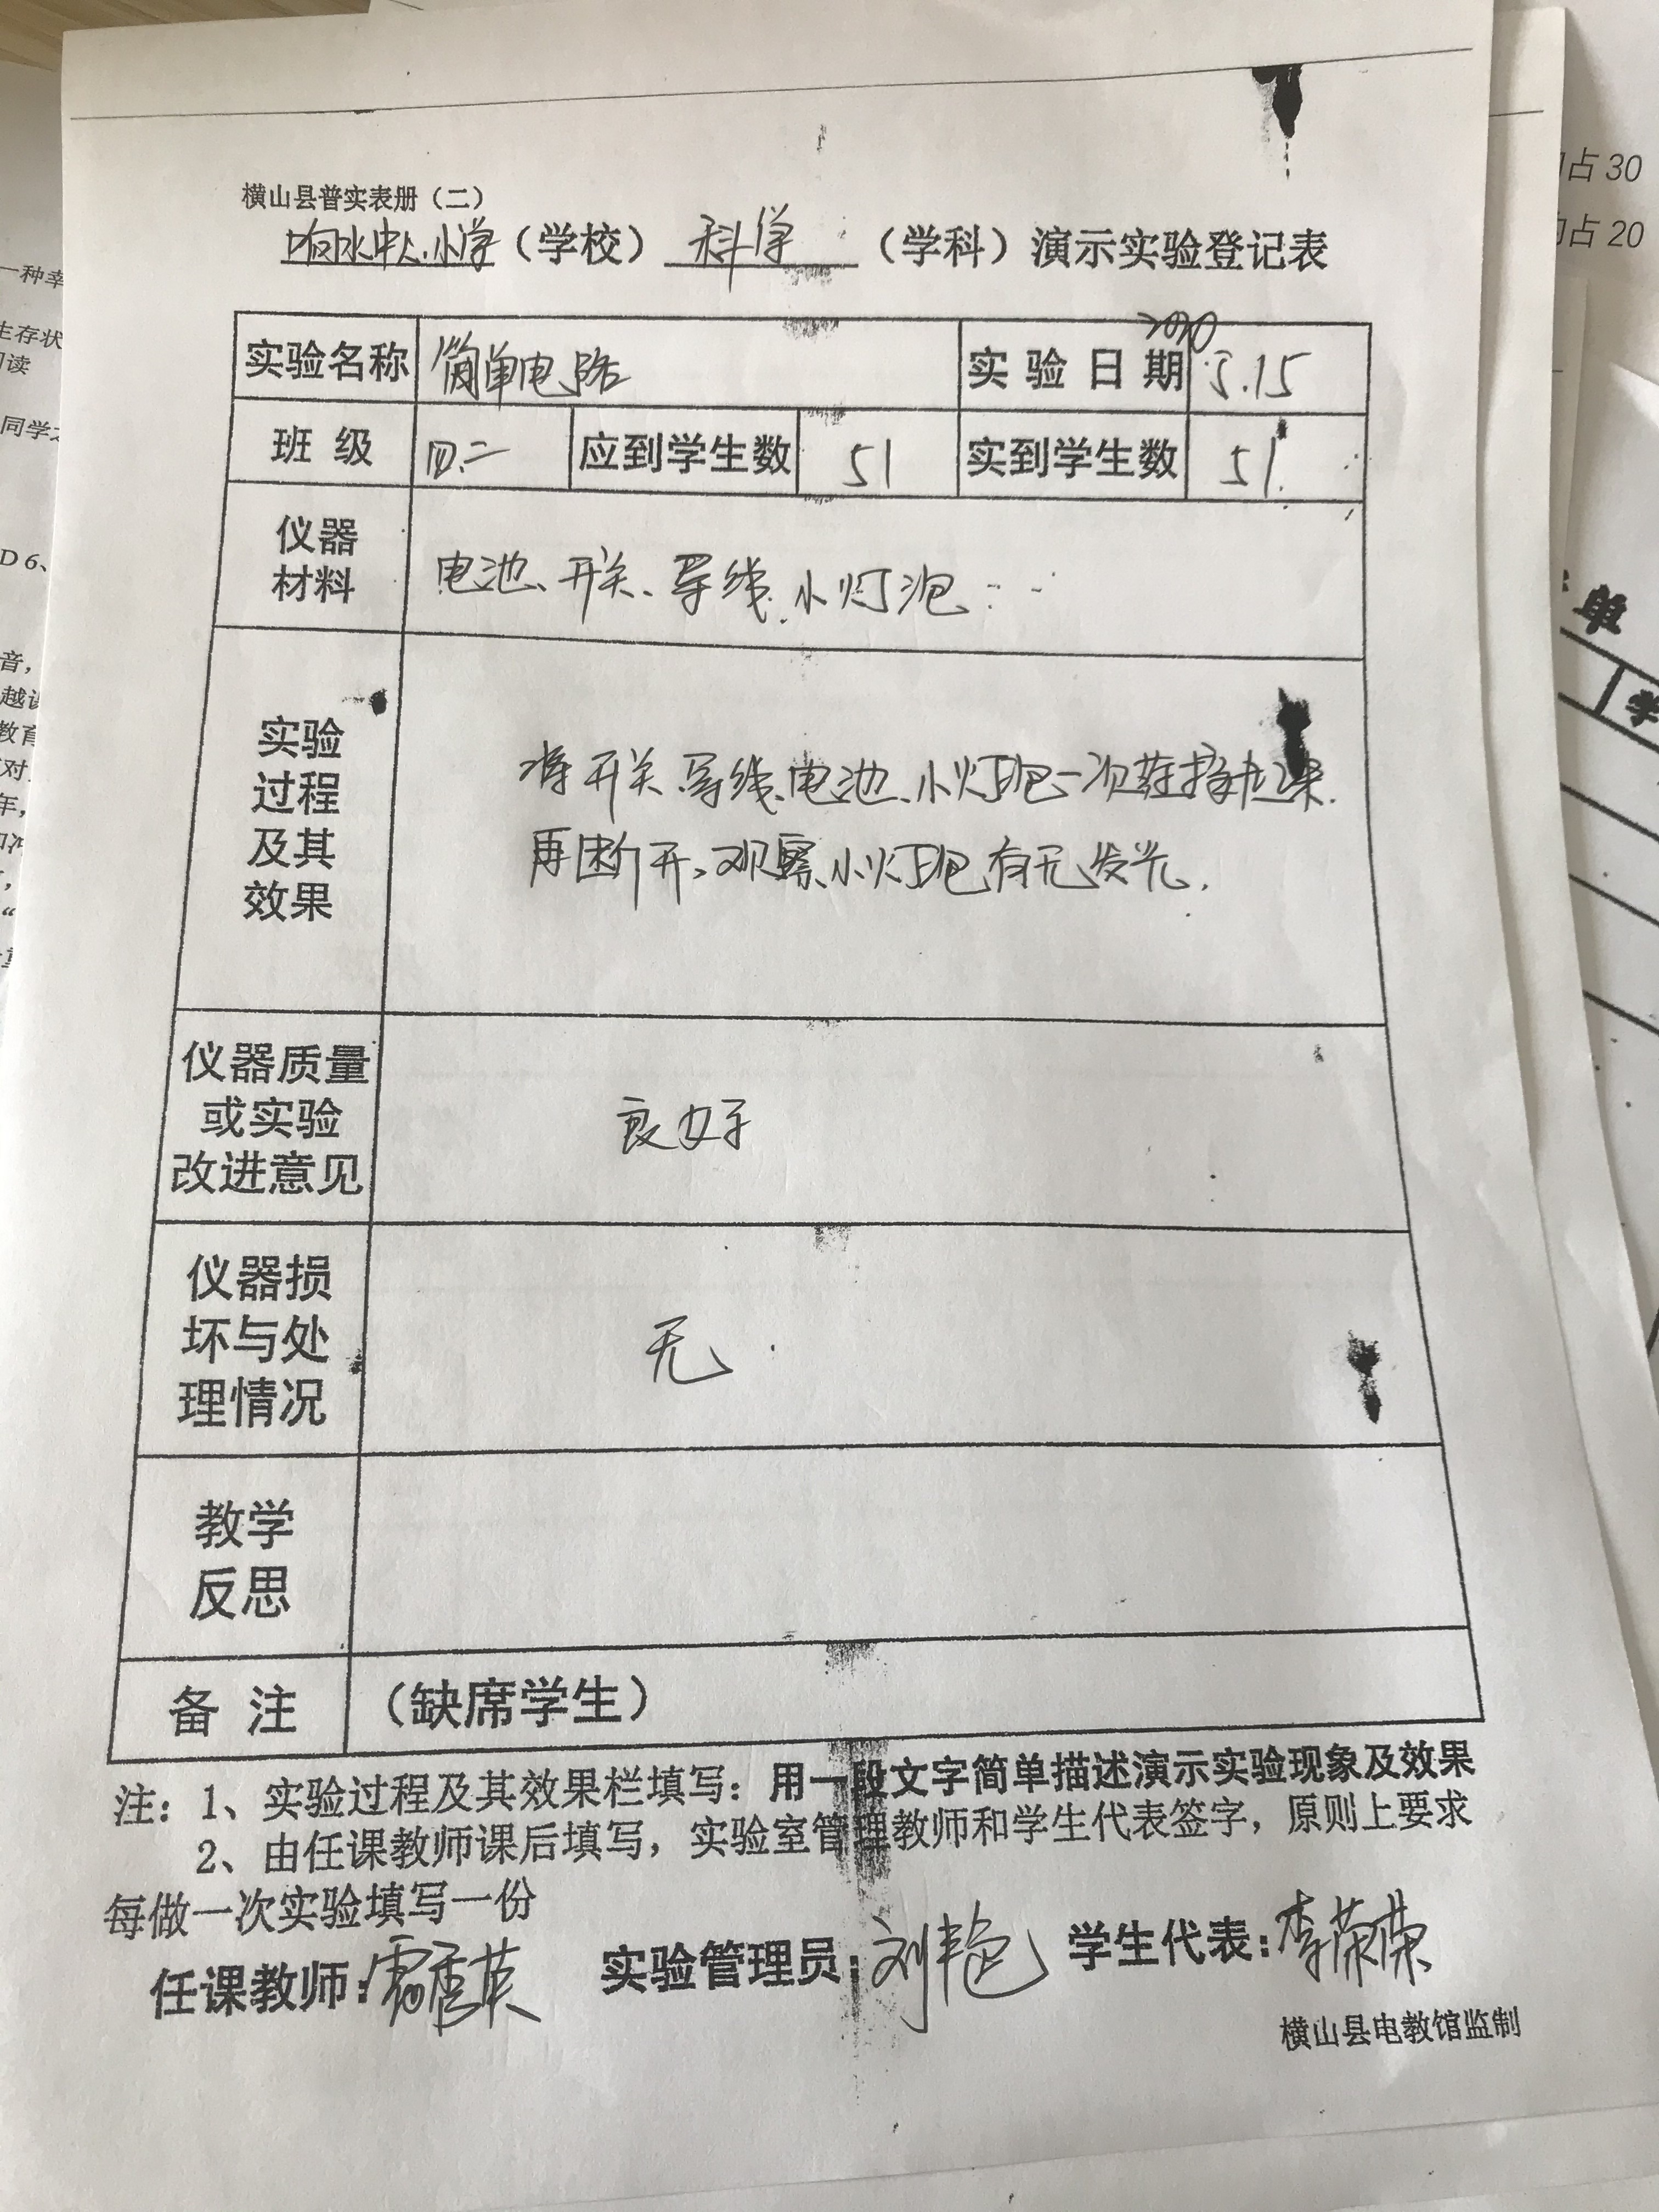 横山县普实表册（二）
响水中心小学（学校）科学（学科）演示实验登记表
实验名称 简单电路 实验日期 2020 5.15
班级 四.二 应到学生数 51 实到学生数 51
仪器
材料
电池、开关、导线、小灯泡
实验
过程
及其
效果
将开关、导线、电池、小灯泡一次连接起来.
再断开,观察小灯泡有无发光.
仪器质量
或实验
改进意见
良好
仪器损
坏与处
理情况
无
教学
反思
备注 （缺席学生）
注：1、实验过程及其效果栏填写：用一段文字简单描述演示实验现象及效果
2、由任课教师课后填写，实验室管理教师和学生代表签字，原则上要求
每做一次实验填写一份
任课教师： 实验管理员：刘艳 学生代表：李荣荣
横山县电教馆监制
占 30
占 20
一种幸
生存状
阅读
同学
D 6、
音，
教育
对
年，
单
学